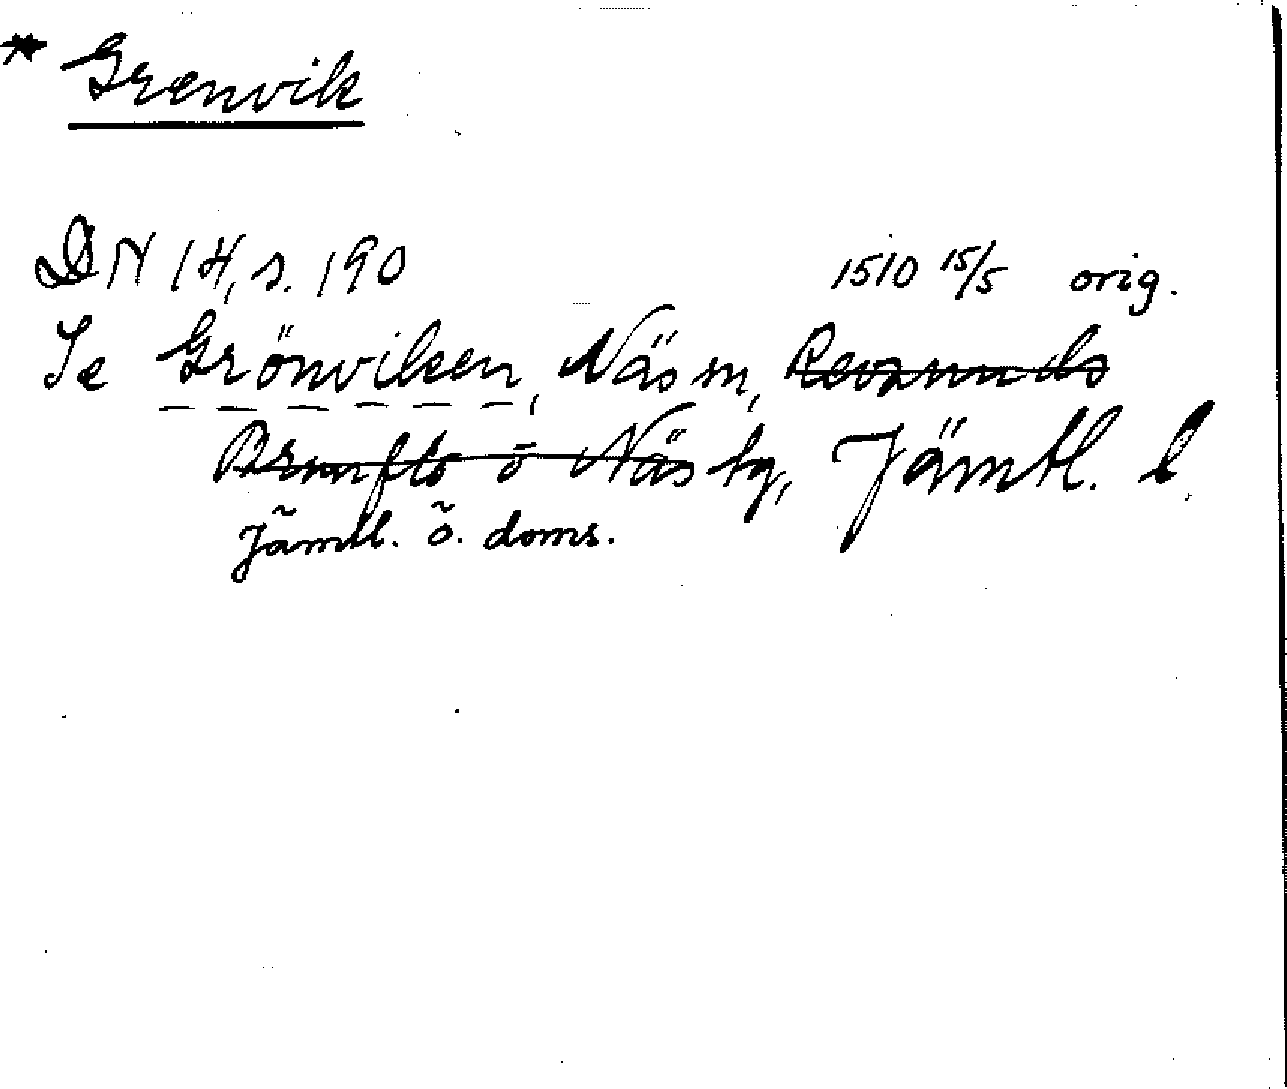 * Grenvik
DN 14, s. 190 1510 15/5 orig.
Se Grönviken, Näs sn, Revsunds
Brunflo o Näs tg, Jämtl. l.
Jämtl. ö. doms.